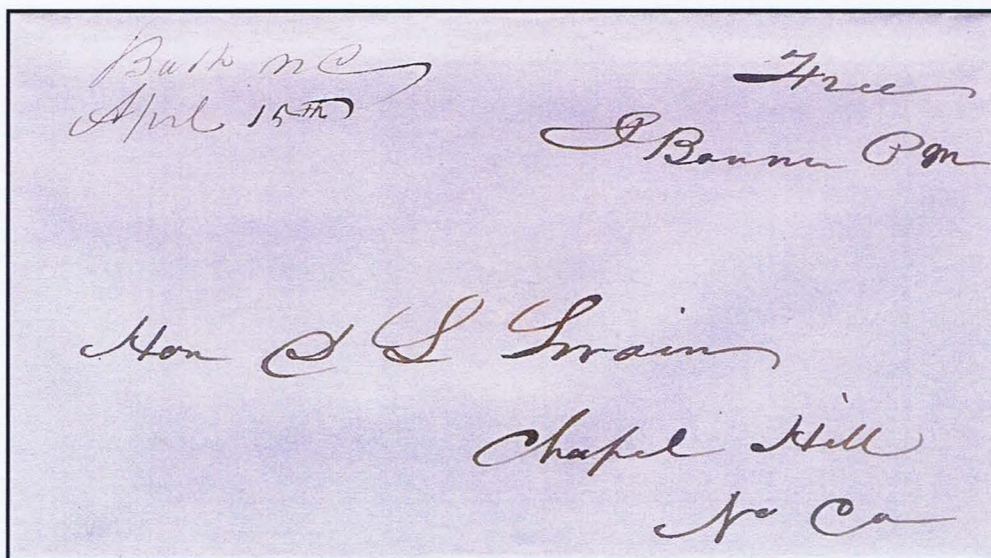 Bath NC
April 15th
Free
J Bonner PM
Hon D L Swain
Chapel Hill
No Ca